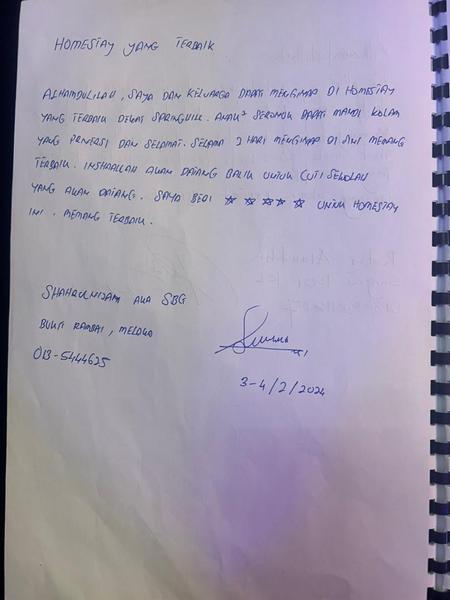 HOMESTAY YANG TERBAIK
ALHAMDULILAH, SAYA DAN KELUARGA DAPAT MENGINAP DI HOMESTAY
YANG TERBAIK DEKAT SPRINGHILL. ANAK² SERONOK DAPAT MANDI KOLAM
YANG PRIVASI DAN SELAMAT. SELAMA 2 HARI MENGINAP DI SINI MEMANG
TERBAIK. INSHAALLAH AKAN DATANG BALIK UNTUK CUTI SEKOLAH
YANG AKAN DATANG. SAYA BERI ☆ ☆ ☆ ☆ ☆ UNTUK HOMESTAY
INI. MEMANG TERBAIK.
SHAHRULNIZAM AKA SBG
BUKIT RAMBAI, MELAKA
013-5444625
3-4/2/2024